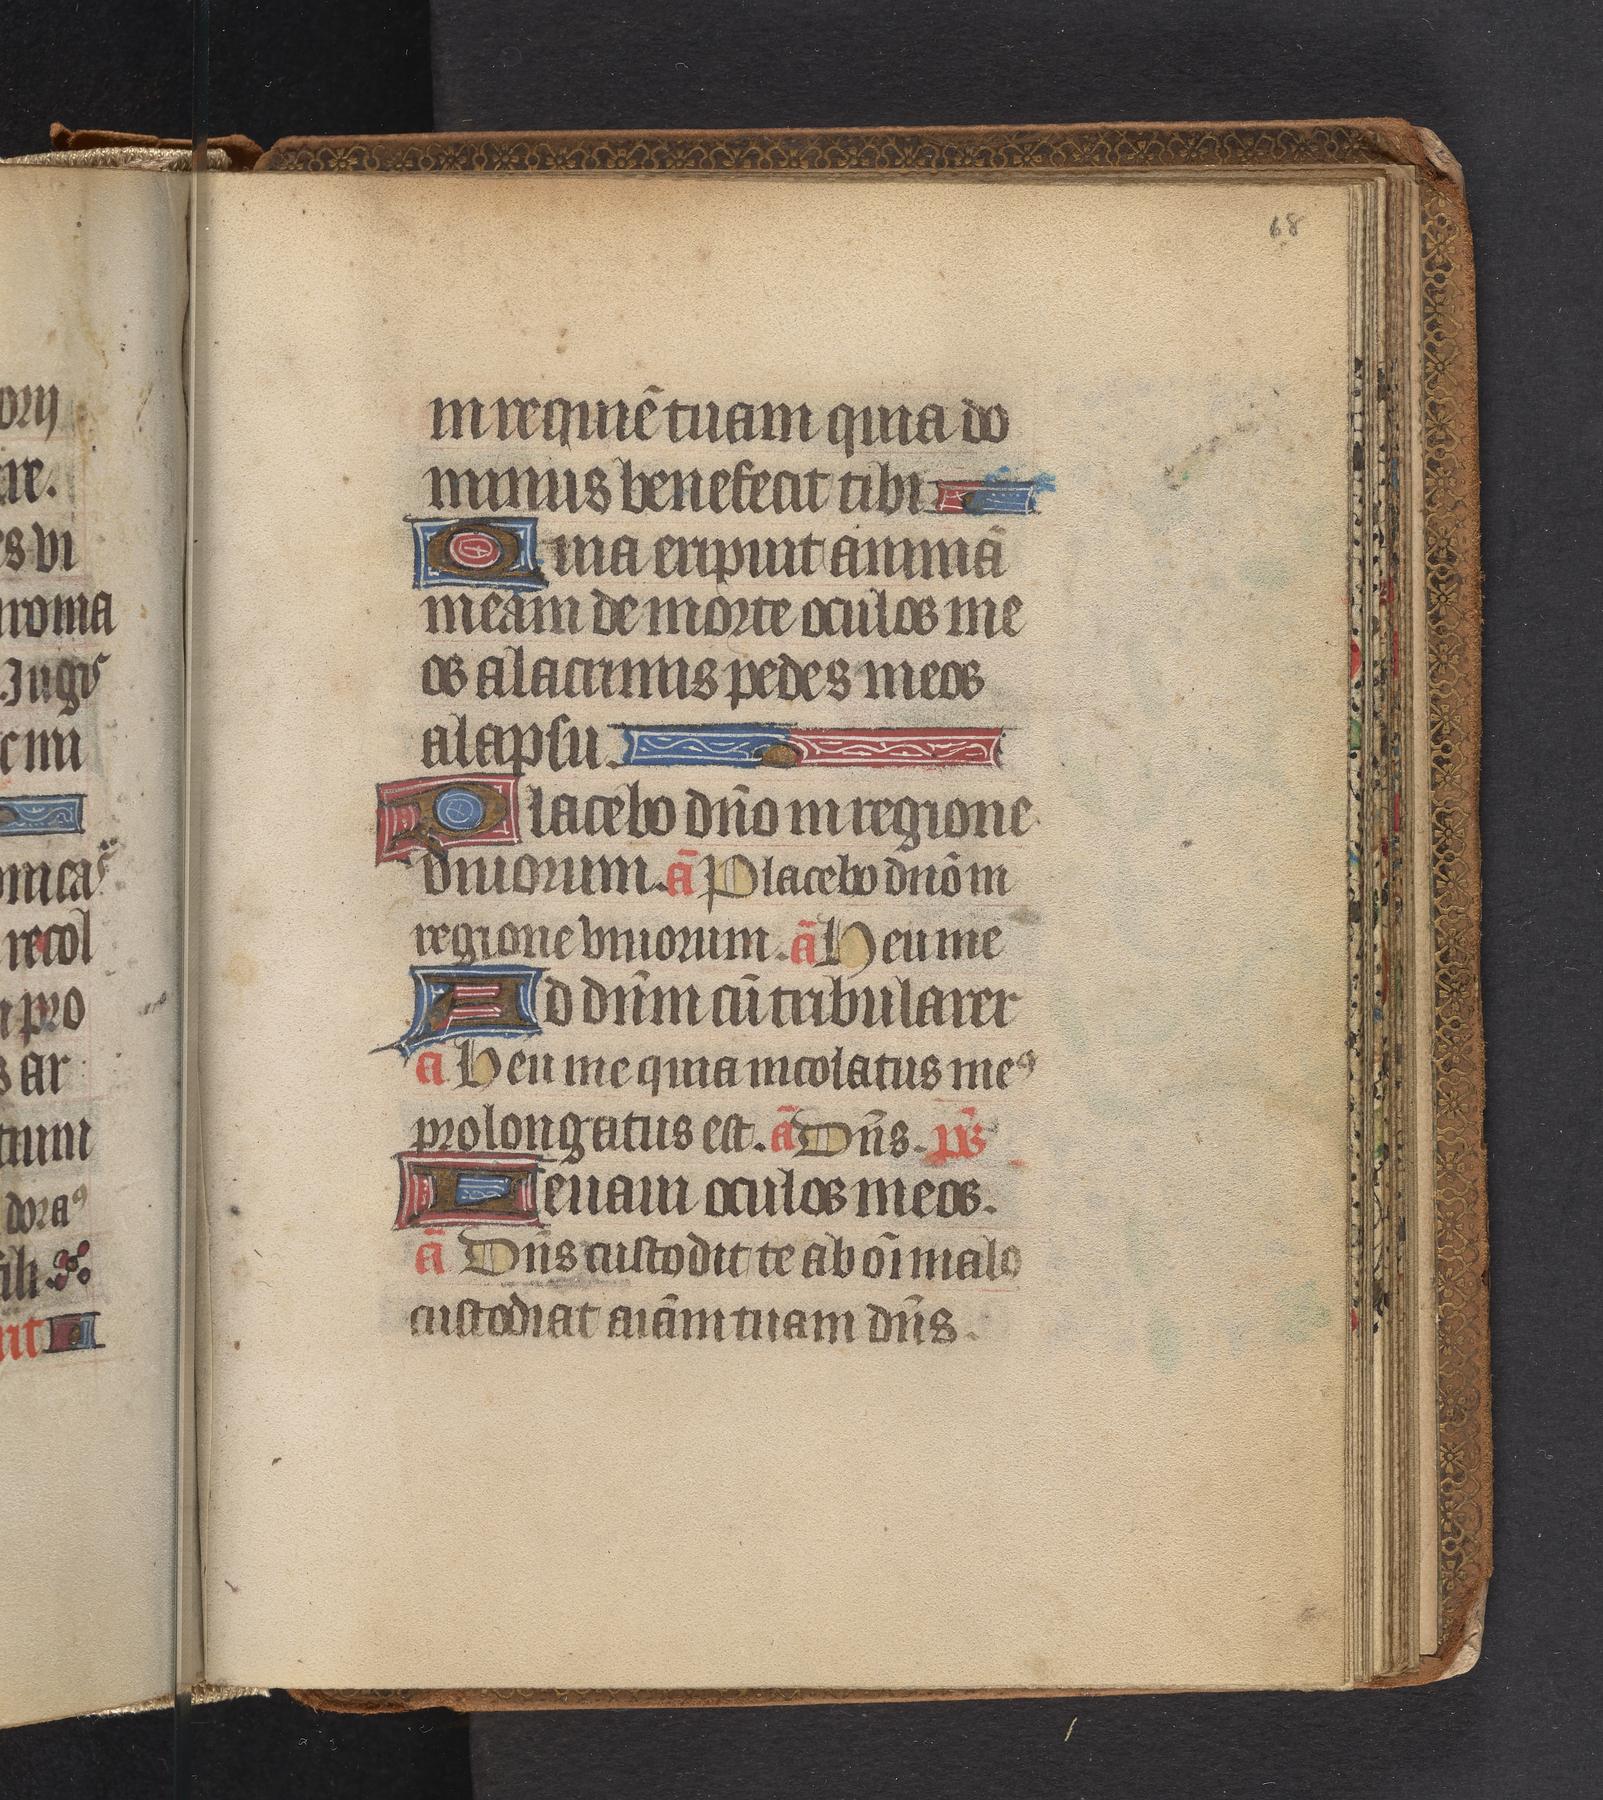 68
in requiē tuam quia do
minus benefecit tibi
Quia eripuit animā
meam de morte oculos me
os a lacrimis pedes meos
a lapsu.
Placebo dño in regione
viuorum. ā Placebo dño in
regione viuorum. ā Heu me
Ad dñm cū tribularer
a Heu me quia incolatus meꝰ
prolongatus est. ā Dñs. p̄s
Leuaui oculos meos.
ā Dñs custodit te ab oī malo
custodiat aīam tuam dñs.
orij
ire.
es vi
roma
Jugi
c mi
onica
recol
n pro
s ar
tium
doraꝰ
sili
nit